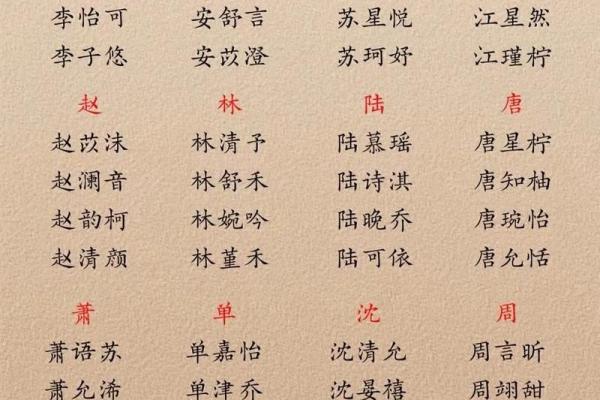 李怡可 安舒言 苏星悦 江星然
李子悠 安苡澄 苏珂妤 江瑾柠
赵 林 陆 唐
赵苡沫 林清予 陆慕瑶 唐星柠
赵澜音 林舒禾 陆诗淇 唐知柚
赵韵柯 林婉吟 陆晚乔 唐琬怡
赵清颜 林堇禾 陆可依 唐允恬
萧 单 沈 周
萧语苏 单嘉怡 沈清允 周言昕
萧允浠 单津乔 沈晏禧 周翊甜